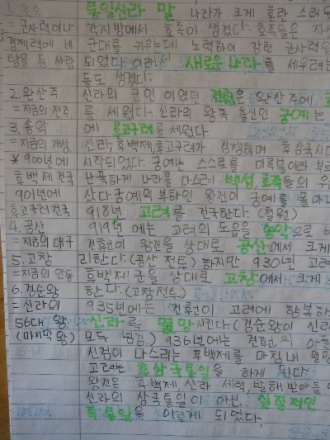 1. 호족 통일신라 말 나라가 크게 혼란
=군사력이나 각지방에서 호족이 생겼다. 호족들은
경제력에 네 군대를 키우는데 노력하여 강한 군사력
있을 든 사람 되었다. 이러서 새로운 나라를 세우려는
들도 생겼다.
2. 완산주 신라의 군인 이였던 견훤은 완산주에
=지금의 전주 를 세웠다. 신라의 왕족 출신인 궁예는
3. 송악 에 후고구려를 세웠다.
=지금의 개성 신라, 후백제, 후고구려가 경쟁하며 후삼국시
*900년에 시작되었다. 궁예는 스스로를 미륵불이라 부
후백제 건국 난폭하게 나라를 다스려 백성, 호족들의
901년에 샀다. 궁예의 부하인 왕건이 궁예를 몰아
후고구려 건국 918년 고려를 건국한다. (철원)
4. 공산 919년에는 고려의 도읍을 송악으로
=지금의 대구 견훤이 왕건을 상대로 공산에서 크게
5. 고창 리한다. (공산 전투) 하지만 930년 고려
=지금의 안동 후백제군을 상대로 고창에서 크게
6. 경순왕 한다. (고창전투)
=신라의 935년에는 견훤이 고려에 항복하
56대 왕 신라를 멸망시킨다. (경순왕이 신라
(마지막 왕) 모두 넘김) 936년에는 견훤은 아들
신검이 다스리는 후백제를 마침내 멸망
고려는 후삼국통일을 하게 된다
왕건은 후백제, 신라 세력, 발해 받아들
신라의 삼국통일이 아닌 실질적인
통일을 이루게 되었다.